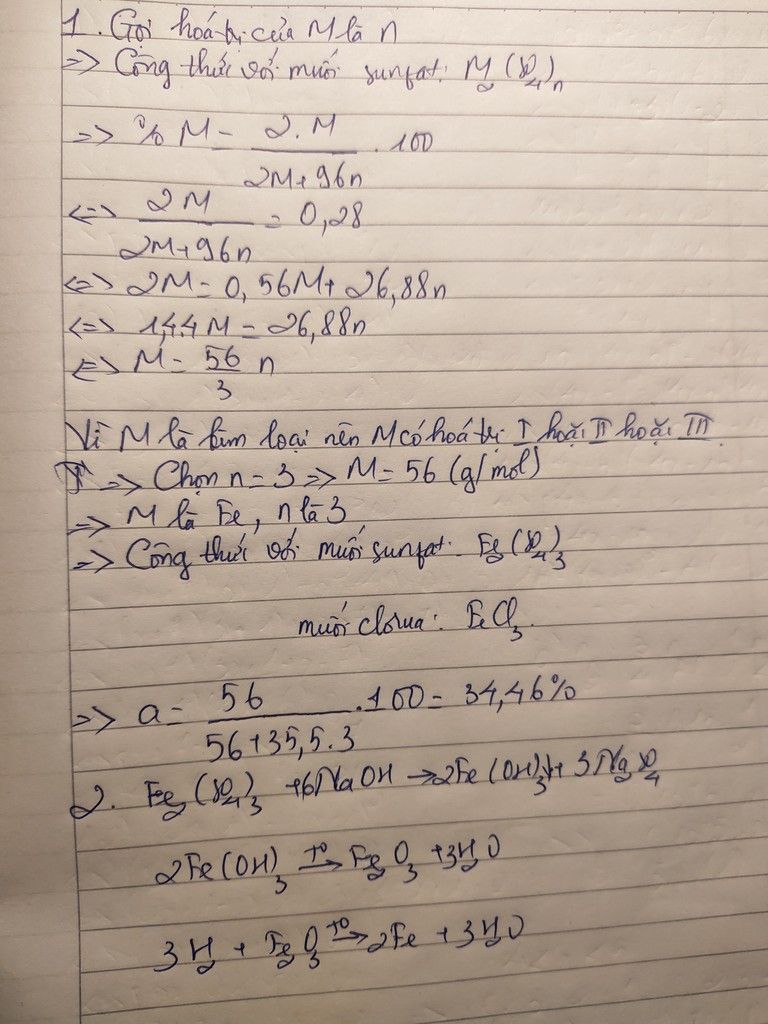 1. Gọi hoá trị của M là n
=> Công thức với muối sunfat: M₂(SO₄)ₙ
=> % M = 2.M / 2M+96n . 100
<=> 2M / 2M+96n = 0,28
<=> 2M = 0,56M + 26,88n
<=> 1,44M = 26,88n
<=> M = 56/3 n
Vì M là kim loại nên M có hoá trị I hoặc II hoặc III.
=> Chọn n = 3 => M = 56 (g/mol)
=> M là Fe, n là 3
=> Công thức với muối sunfat: Fe₂(SO₄)₃
muối clorua: FeCl₃.
=> a = 56 / 56+35,5.3 .100 = 34,46%
2. Fe₂(SO₄)₃ + 6NaOH → 2Fe(OH)₃↓ + 3Na₂SO₄
2Fe(OH)₃ t°→ Fe₂O₃ + 3H₂O
3H₂ + Fe₂O₃ t°→ 2Fe + 3H₂O